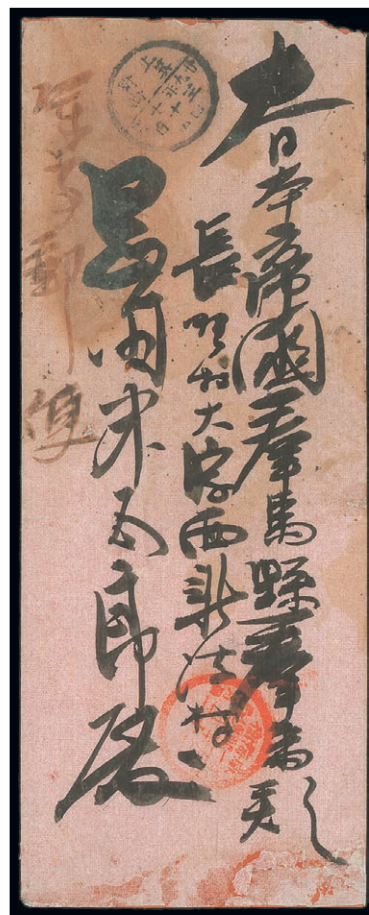 大日本帝國羣馬縣羣馬郡
長野村大字西新波村
田米五郎殿
軍事郵便